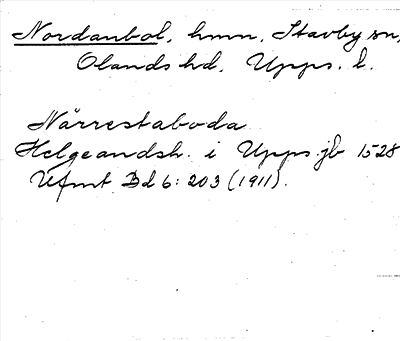 Nordanbol, hmn, Stavby sn,
Olands hd, Upps. l.
Närrestaboda
Helgeandsh. i Upps. jb 1528
Ufmt Bd 6: 203 (1911).